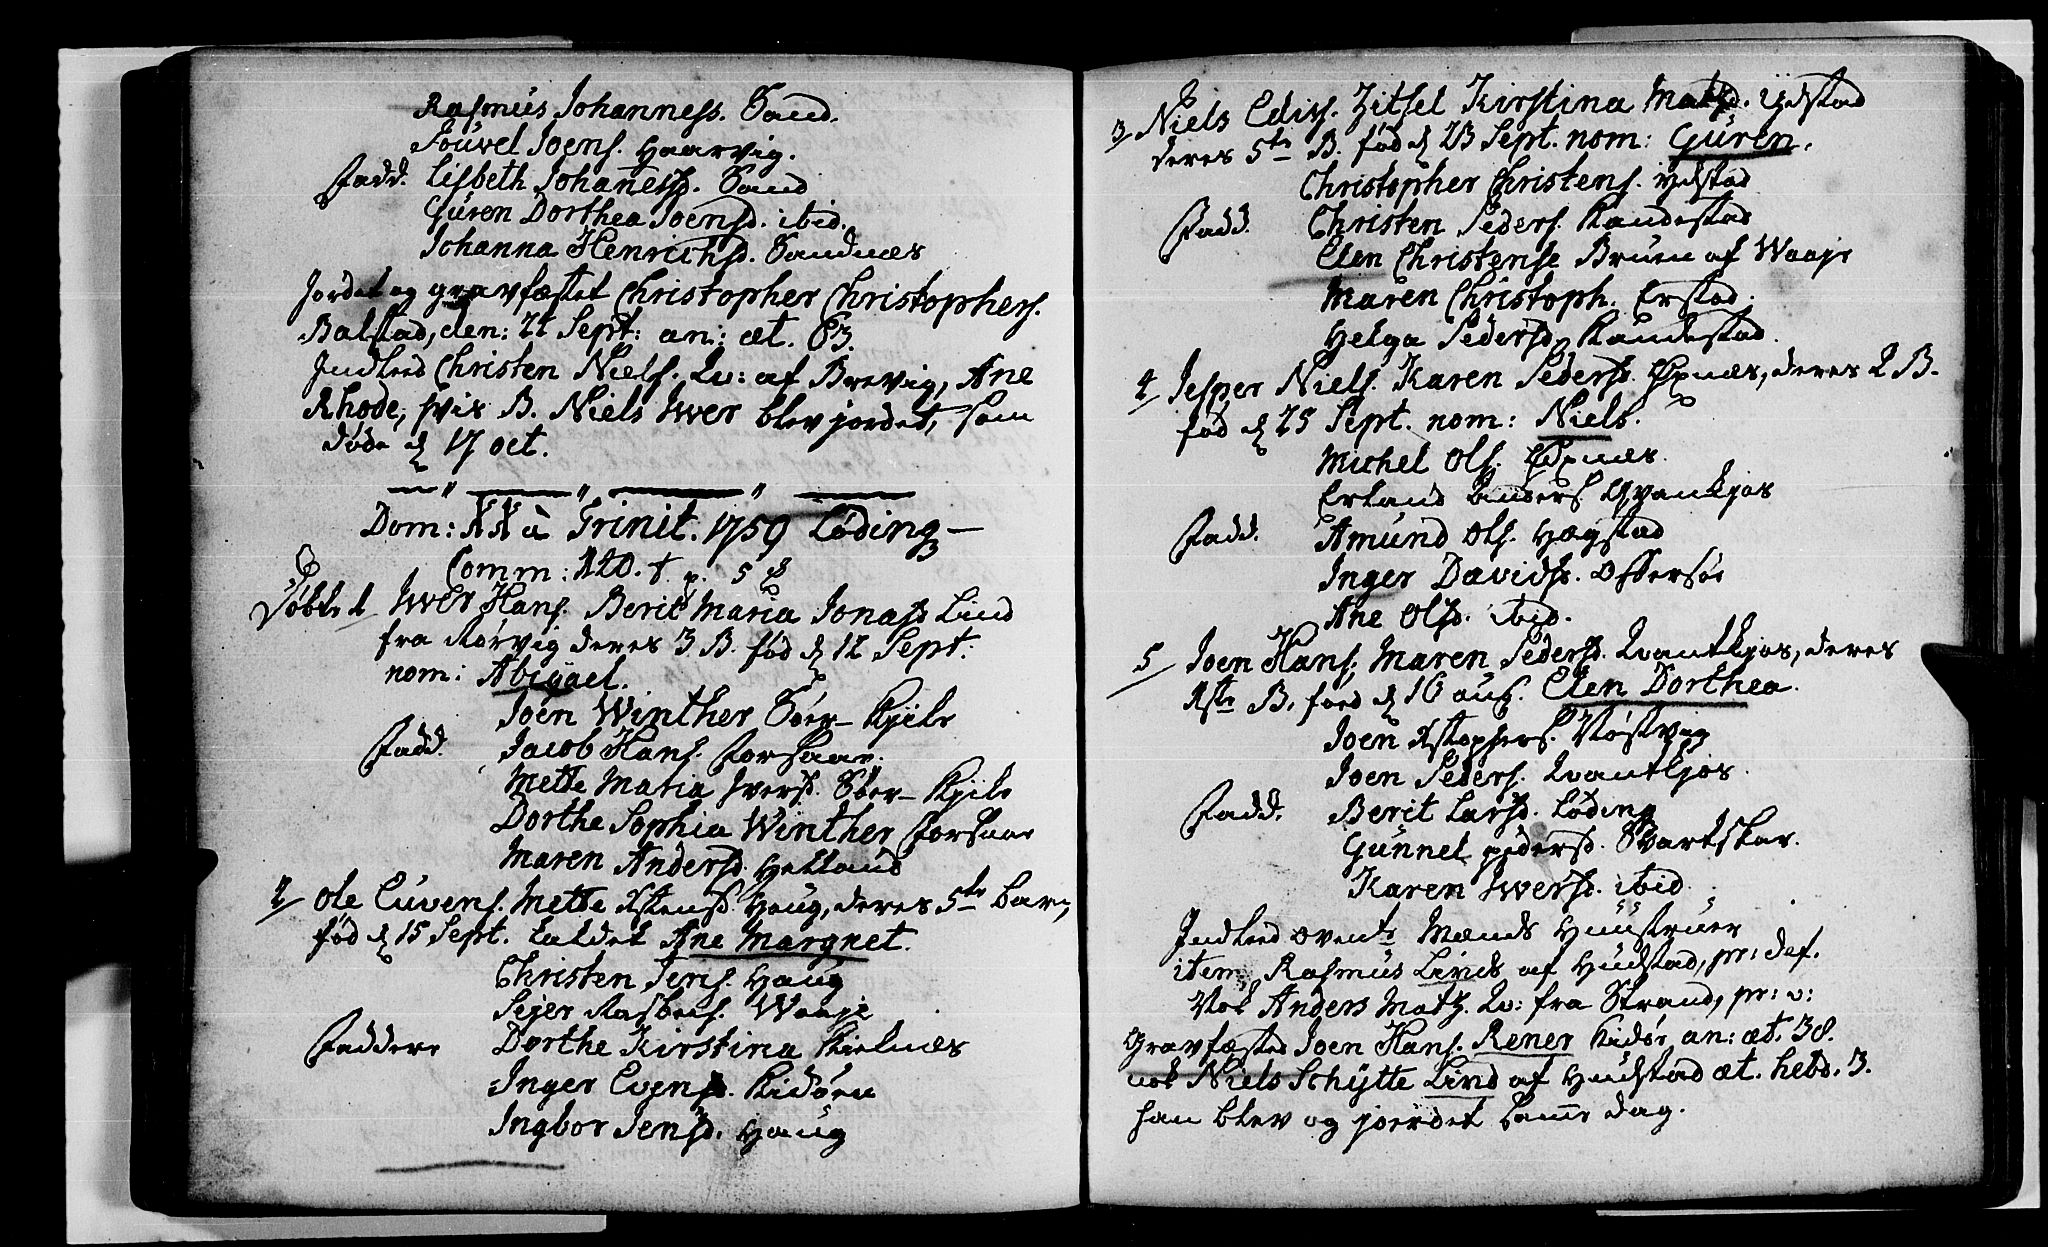 Rasmus Johanness. Sand.
Pouvel Joens. Haarvig.
Fadd. Lisbeth Johanesd. Sand
Guren Dorthea Joensd. ibid.
Johanna Henrichsd. Sandnæs
Jordet og gravfæstet Christopher Christophers.
Balstad, den: 21 Sept: an: æt. 63.
Indleed Christen Niels. Qv: af Brevig, Ane
Rhode, hvis B. Niels Iver blev jordet, som
døde d 17 oct.
Dom: XX à Trinit. 1759 Løding
Comm: 120. p. 5
Døbte 1 Iver Hans. Berit Maria Jonasd Lind
fra Rørvig deres 3 B. fød d 12 Sept:
nom: Abigael.
Joen Winther Søer Kjile
Fadd. Jacob Hans. Forsaae.
Mette Maria Iversd. Søer Kjile
Dorthe Sophia Winther Forsaae
Maren Andersd. Helland
2/ Ole Euvens. Mette Xstensd. Haug, deres 5te barn,
fød d 15 Sept. kaldet Ane Margret.
Christen Jens. Haug
Pejer Rasbech. Waaje
Faddere Dorthe Kirstina Kielnæs
Inger Evensd. Kidøen
Ingbor Jensd. Haug
3/ Niels Edis. Zitsel Kirstina Matsd. Ydstad
deres 5te B. fød d 23 Sept. nom: Guren.
Christopher Christens. Ydstad
Fadd. Christen Peders. Kandestad
Elen Christense Bruun af Waaje
Maren Christoph. Erstad.
Helga Pedersd. Kandestad.
4/ Jesper Niels. Karen Pedersd. Espnæs, deres 2 B.
fød d 25 Sept. nom: Niels.
Michel Ols. Espnæs.
Erland Anders. Qvankjos
Fadd. Amund Ols. Hægstad
Inger Davids. Offersøe
Ane Olsd. ibid.
5/ Joen Hans. Maren Pedersd. Qvantkjos, deres
1ste B. foed d 16 aug. Elen Dorthea.
Joen Xstophers. Vøstvig
Joen Peders. Qvantkjos.
Fadd. Berit Larsd. Løding
Gunnel pedersd. Svartskar.
Karen Iwersd. ibid.
Indleed ovente Mænds Hustruer
item Rasmus Linds af Hudstad, pr: def.
Nok Anders Matz. Qv: fra Strand, pr: v:
Gravfæstes Joen Hans. Rener Kidøe, an: æt. 38.
nok Niels Schytte Lind af Hudstad æt. hebd. 3.
han blev og joerdet samme dag.